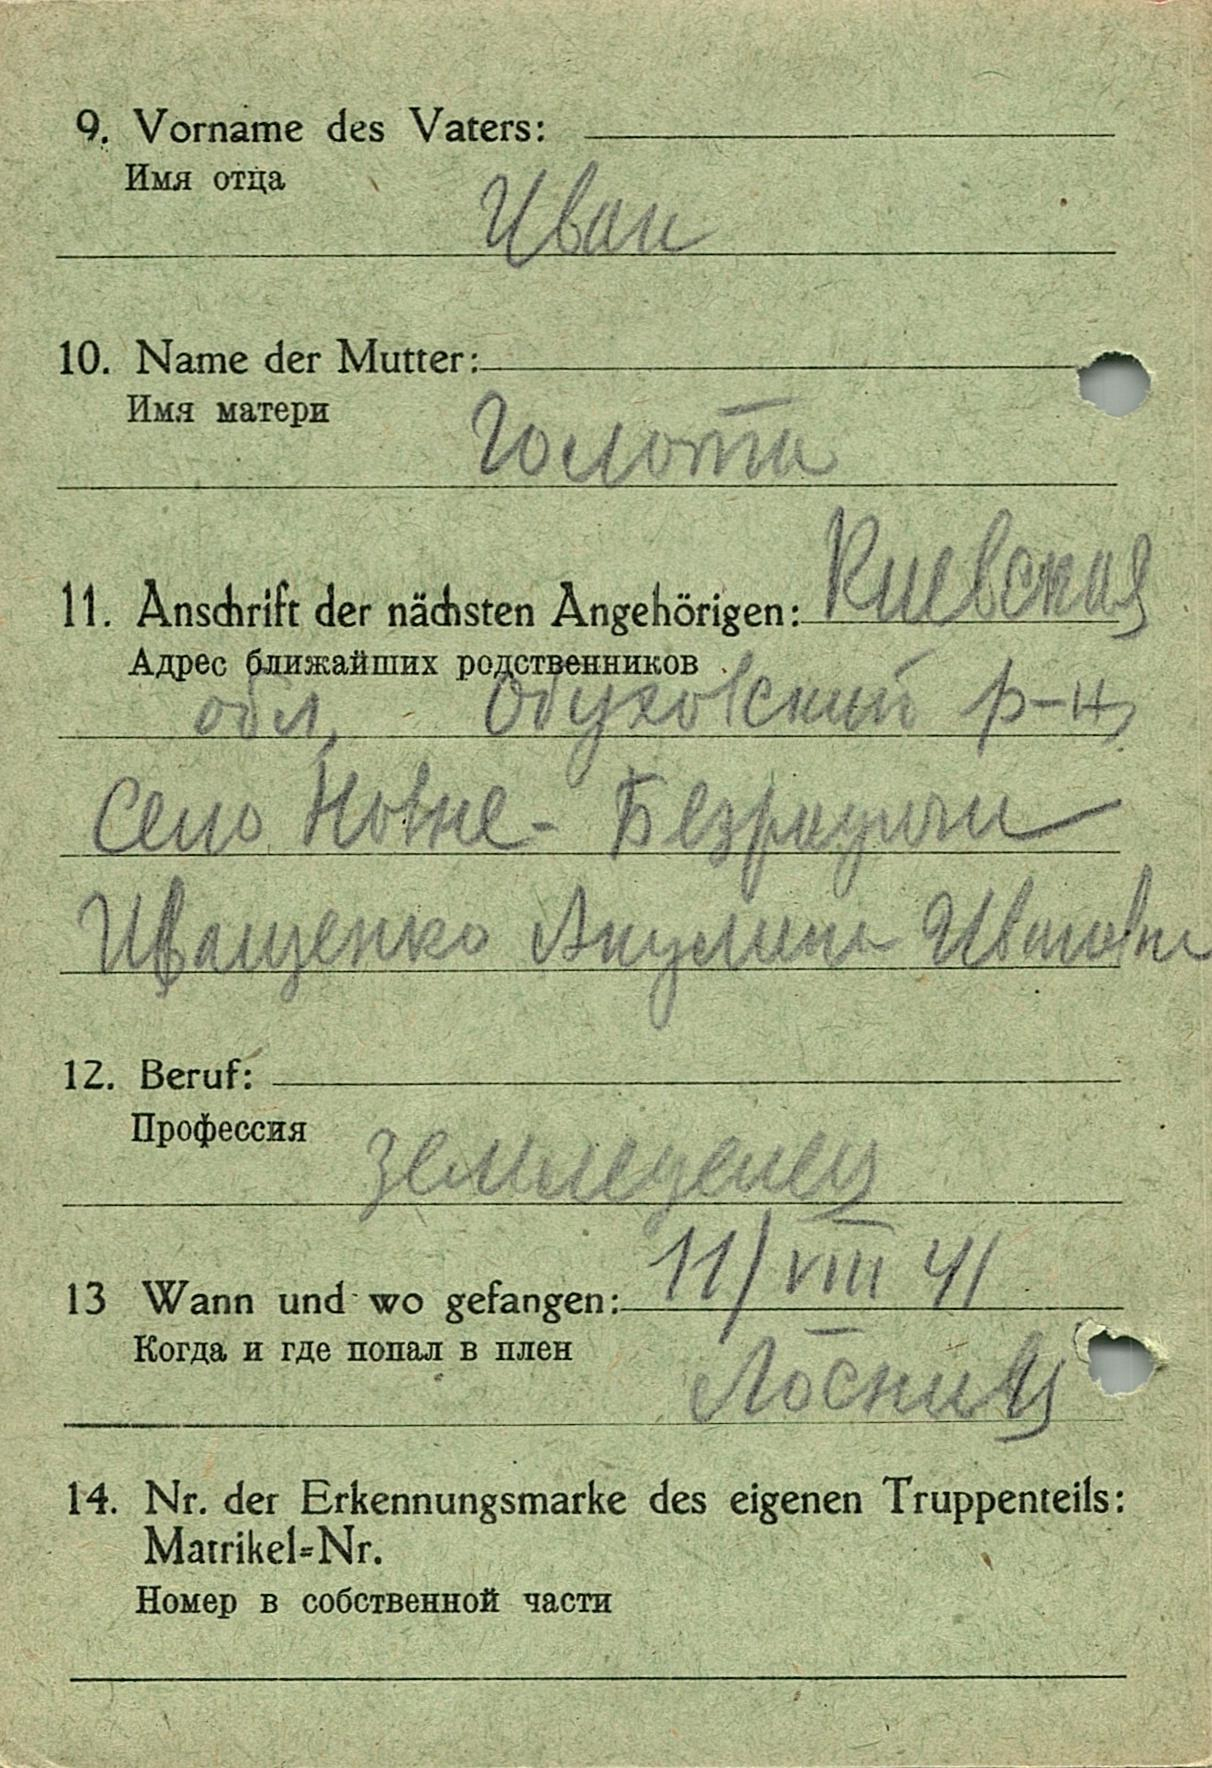 9. Vorname des Vaters:
Имя отца
Иван
10. Name der Mutter:
Имя матери
Голота
11. Anschrift der nächsten Angehörigen: Киевская
Адрес ближайших родственников
обл, Обуховский р-н,
Село Новые - Безрадичи
Иващенко Акулина Ивановна
12. Beruf:
Профессия
земледелец
11/VIII 41
13 Wann und wo gefangen:
Когда и где попал в плен
14. Nr. der Erkennungsmarke des eigenen Truppenteils:
Matrikel=Nr.
Номер в собственной части